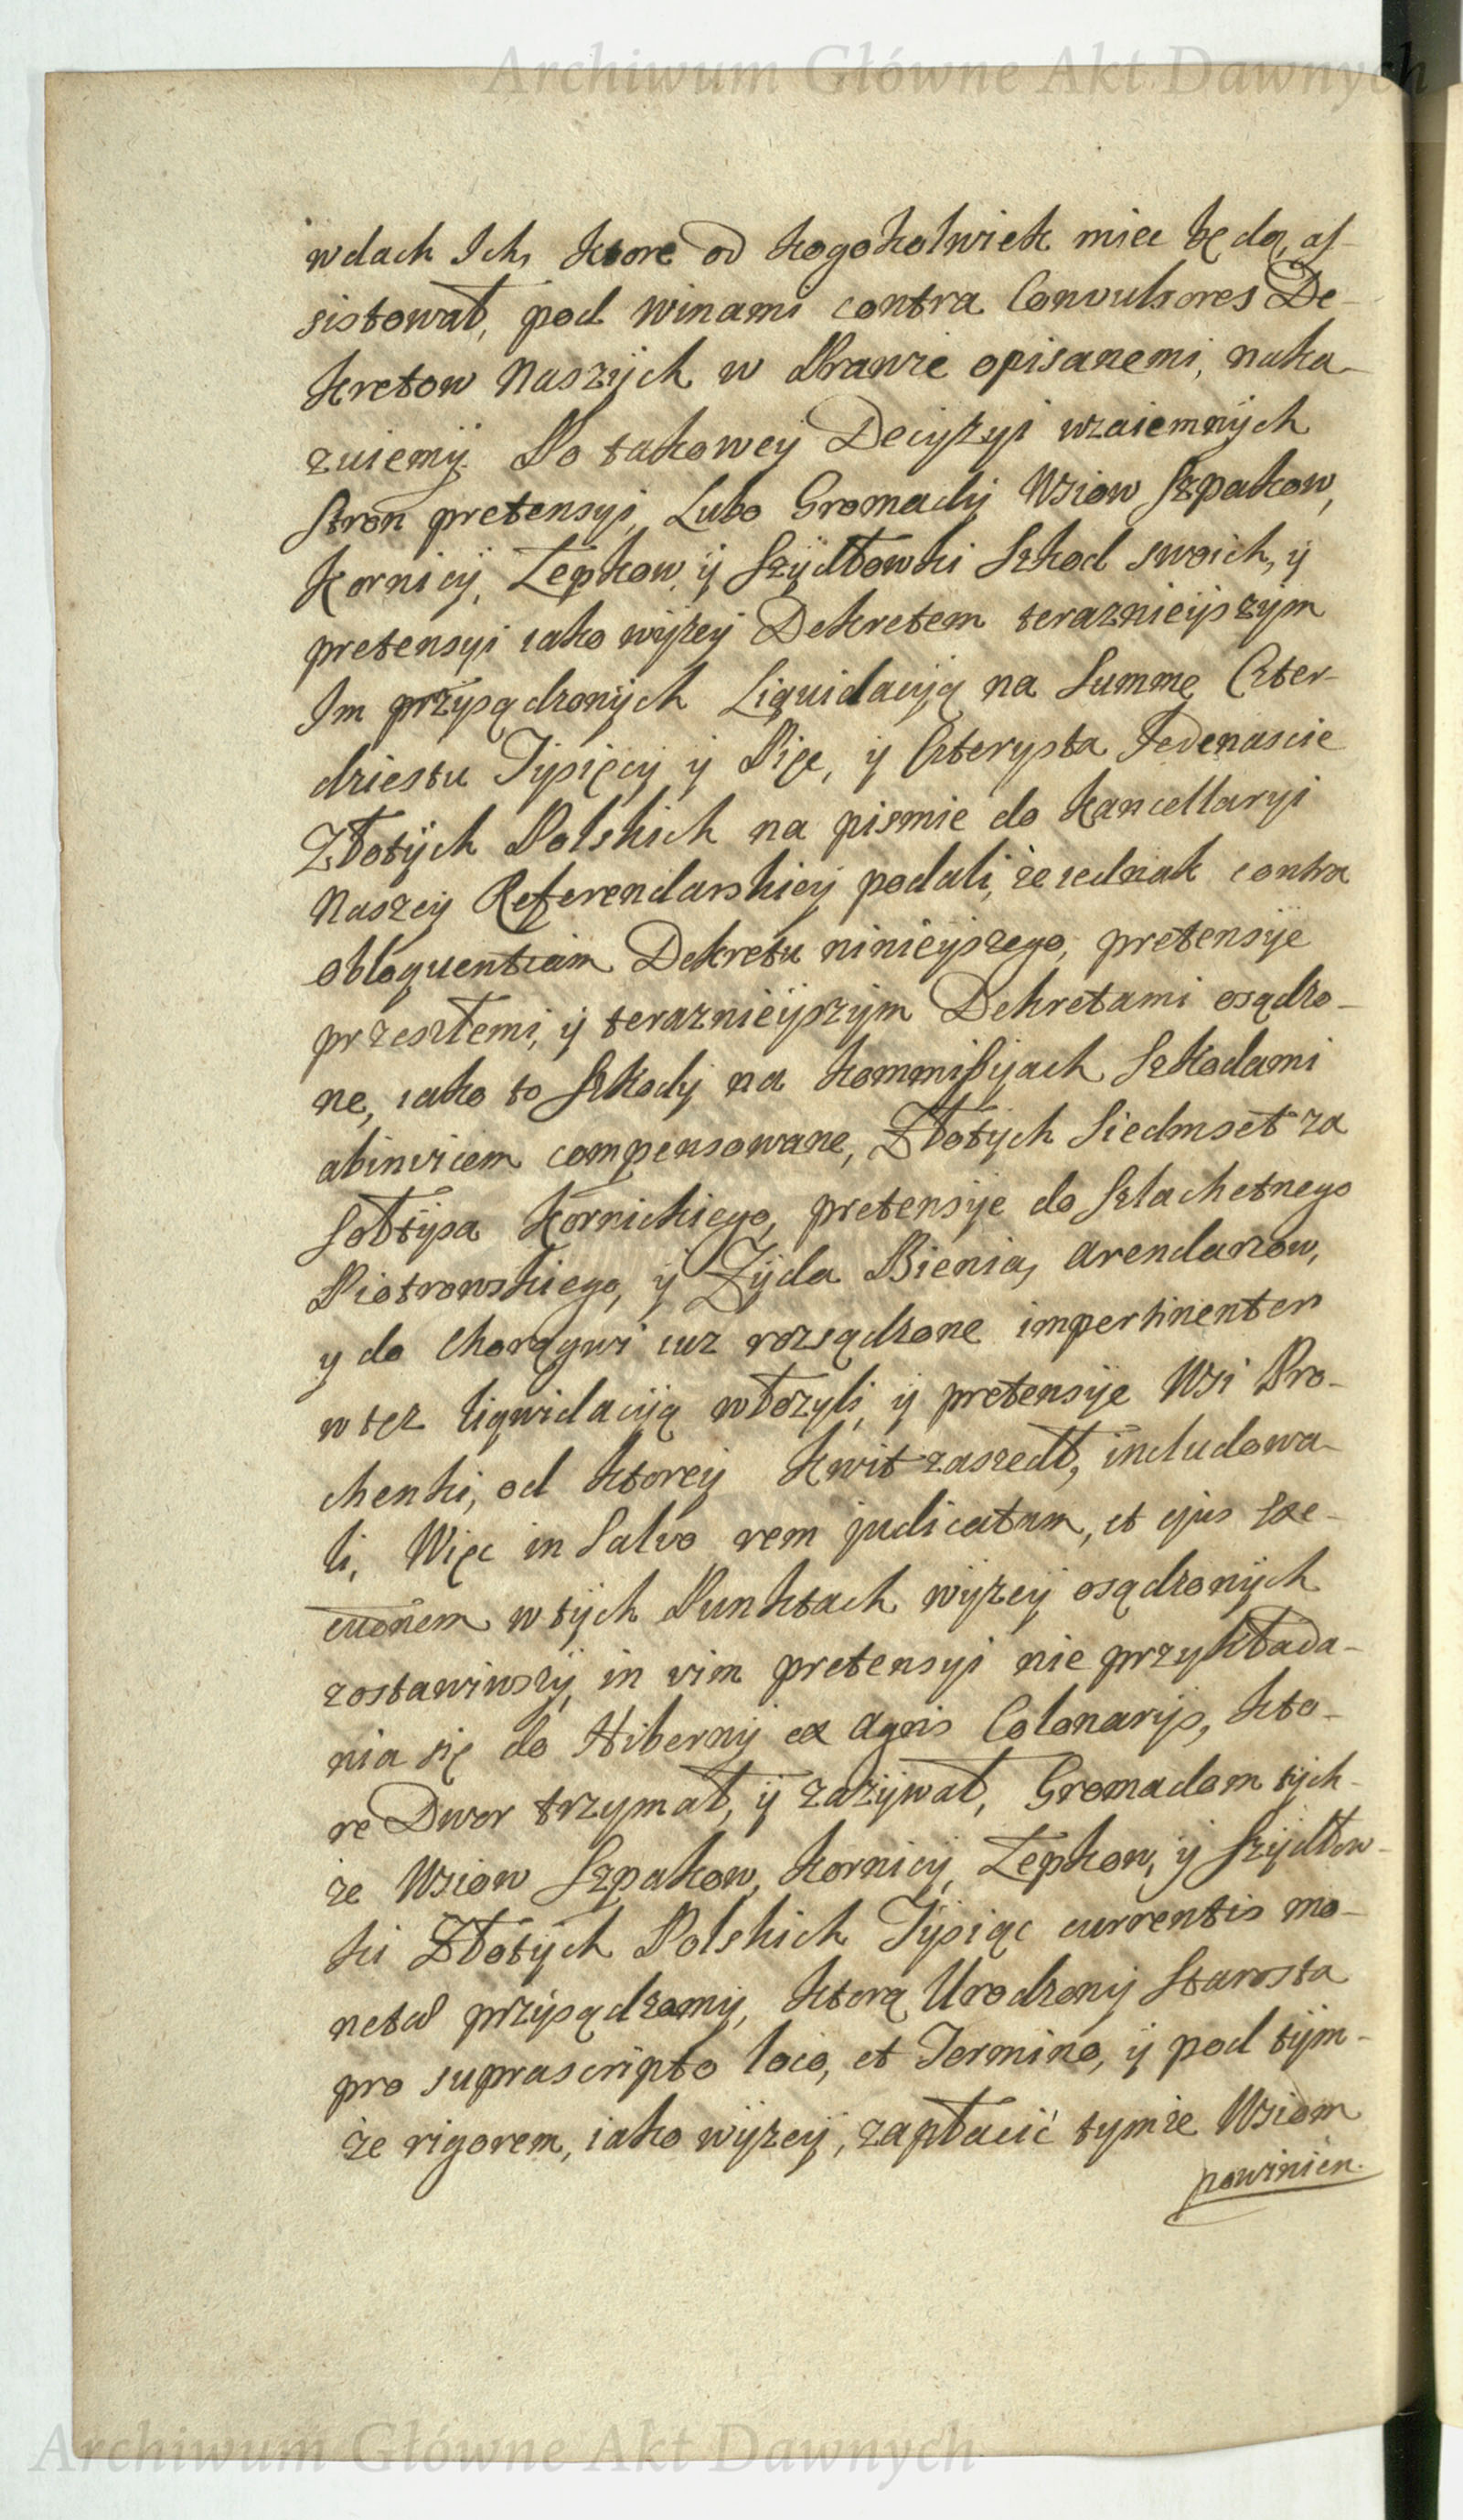 Archiwum Główne Akt Dawnych
wdach Ich, ktore od kogokolwiek miec będą, as-
sistował, pod winami contra Convulsores De-
kretow Naszÿch w Prawie opisanemi, naka-
zuiemÿ. Po takowey Decÿzyi wzaiemnÿch
stron pretensyi, Lubo Gromadÿ Wsiow Szpakow,
Kornicÿ, Łepkow, ÿ Szÿdłowki Szkod swoich, ÿ
pretensyi iako wÿzeÿ Dekretem teraznieÿszÿm
Im przÿsądzonÿch Liquidacÿą na Summę Czter-
dziestu Tÿsięcÿ ÿ Pięc, ÿ Czterÿsta Jedenascie
Złotÿch Polskich na pismie do Kancellaryi
Naszeÿ Referendarskieÿ podali, że iednak contra
obloquentiam Dekretu ninieÿszego, pretensÿe
przeszłemi, ÿ teraznieÿszÿm Dekretami osądzo-
ne, iako to Szkodÿ na kommiſsÿach Szkodami
abinvicem compensowane, Złotÿch Siedmset za
Sołtÿsa Kornickiego, pretensÿe do Szlachetnego
Piotrowskiego, ÿ Zÿda Bienia, arendarzow,
y do Chorągwi iuz rozsądzone impertinenter
w tęz liqwidacÿą włozyli, ÿ pretensÿe Wsi Pro-
chenki, od ktoreÿ kwit zaszedł, includowa-
li, Więc in Salvo rem judicatam, et ejus Exe-
cuõnem w tÿch Punktach wÿzeÿ osądzonÿch
zostawiwszÿ, in vim pretensyi nie przykłada-
nia się do Hibernÿ ex Agris Colonarijs, kto-
re Dwor trzymał, ÿ zazÿwał, Gromadom tÿch-
że Wsiow Szpakow, Kornicÿ, Łepkow, ÿ Szÿdłow-
ki Złotÿch Polskich Tÿsiąc currentis mo-
netæ przÿsądzamÿ, ktorą Urodzonÿ Starosta
pro suprascripto loco, et Termino, ÿ pod tÿm-
że rigorem, iako wÿzeÿ, zapłacić tymże Wsiom
powinien.
Archiwum Główne Akt Dawnych